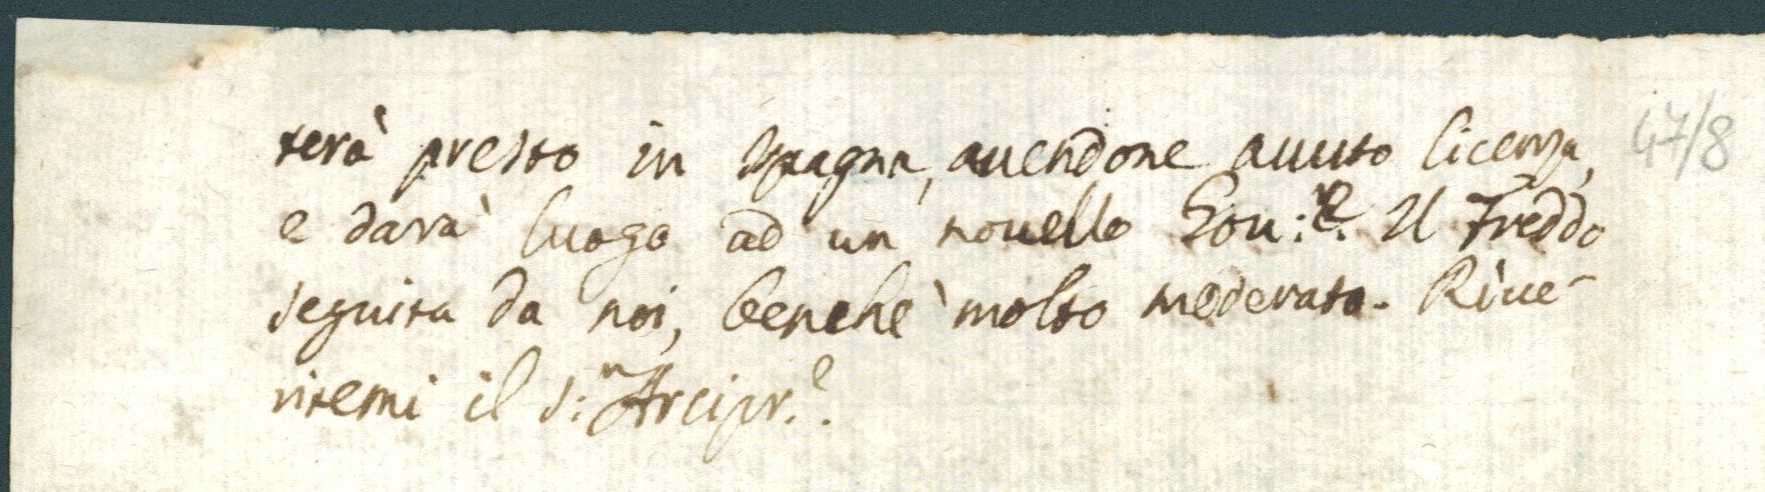 terà presto in Spagna, auendone auuto licenza, 47/8
e darà luogo ad un nouello Gou:re. Il Freddo
seguita da noi, benche' molto moderato. Riue-
ritemi il S:n Arcipr.e.